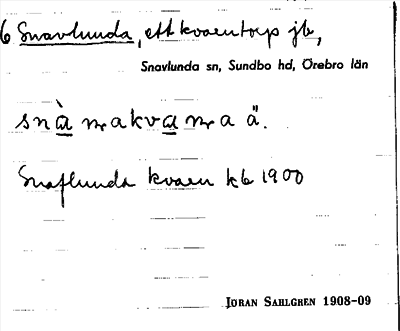 6 Snavlunda, ett kvarntorp jb,
Snavlunda sn, Sundbo hd, Örebro län
Snaflunda kvarn kb 1900
JÖRAN SAHLGREN 1908-09